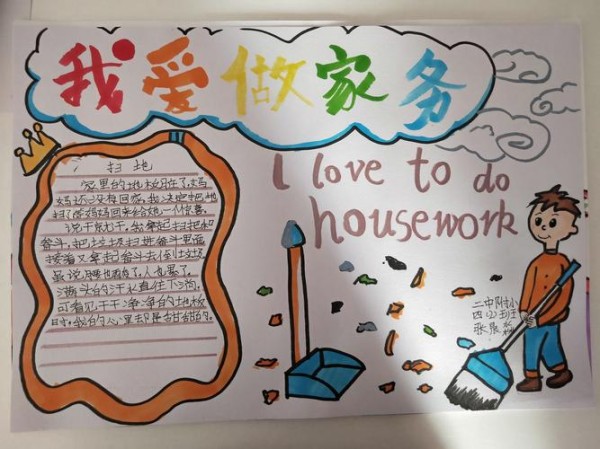 我爱做家务
I love to do
housework
扫地
家里的地板脏了,妈
妈还没有回家,我决定把地
扫了给妈妈回来给她一个惊喜。
说干就干。我拿起扫把和
畚斗,把垃圾扫进畚斗里面
接着又拿起畚斗去倒垃圾
虽说腰也酸了,人也累了。
满头的汗水直往下淌。
可看见干干净净的地板
时,我的心里却是甜甜的。
二中附小
四(2)班
张